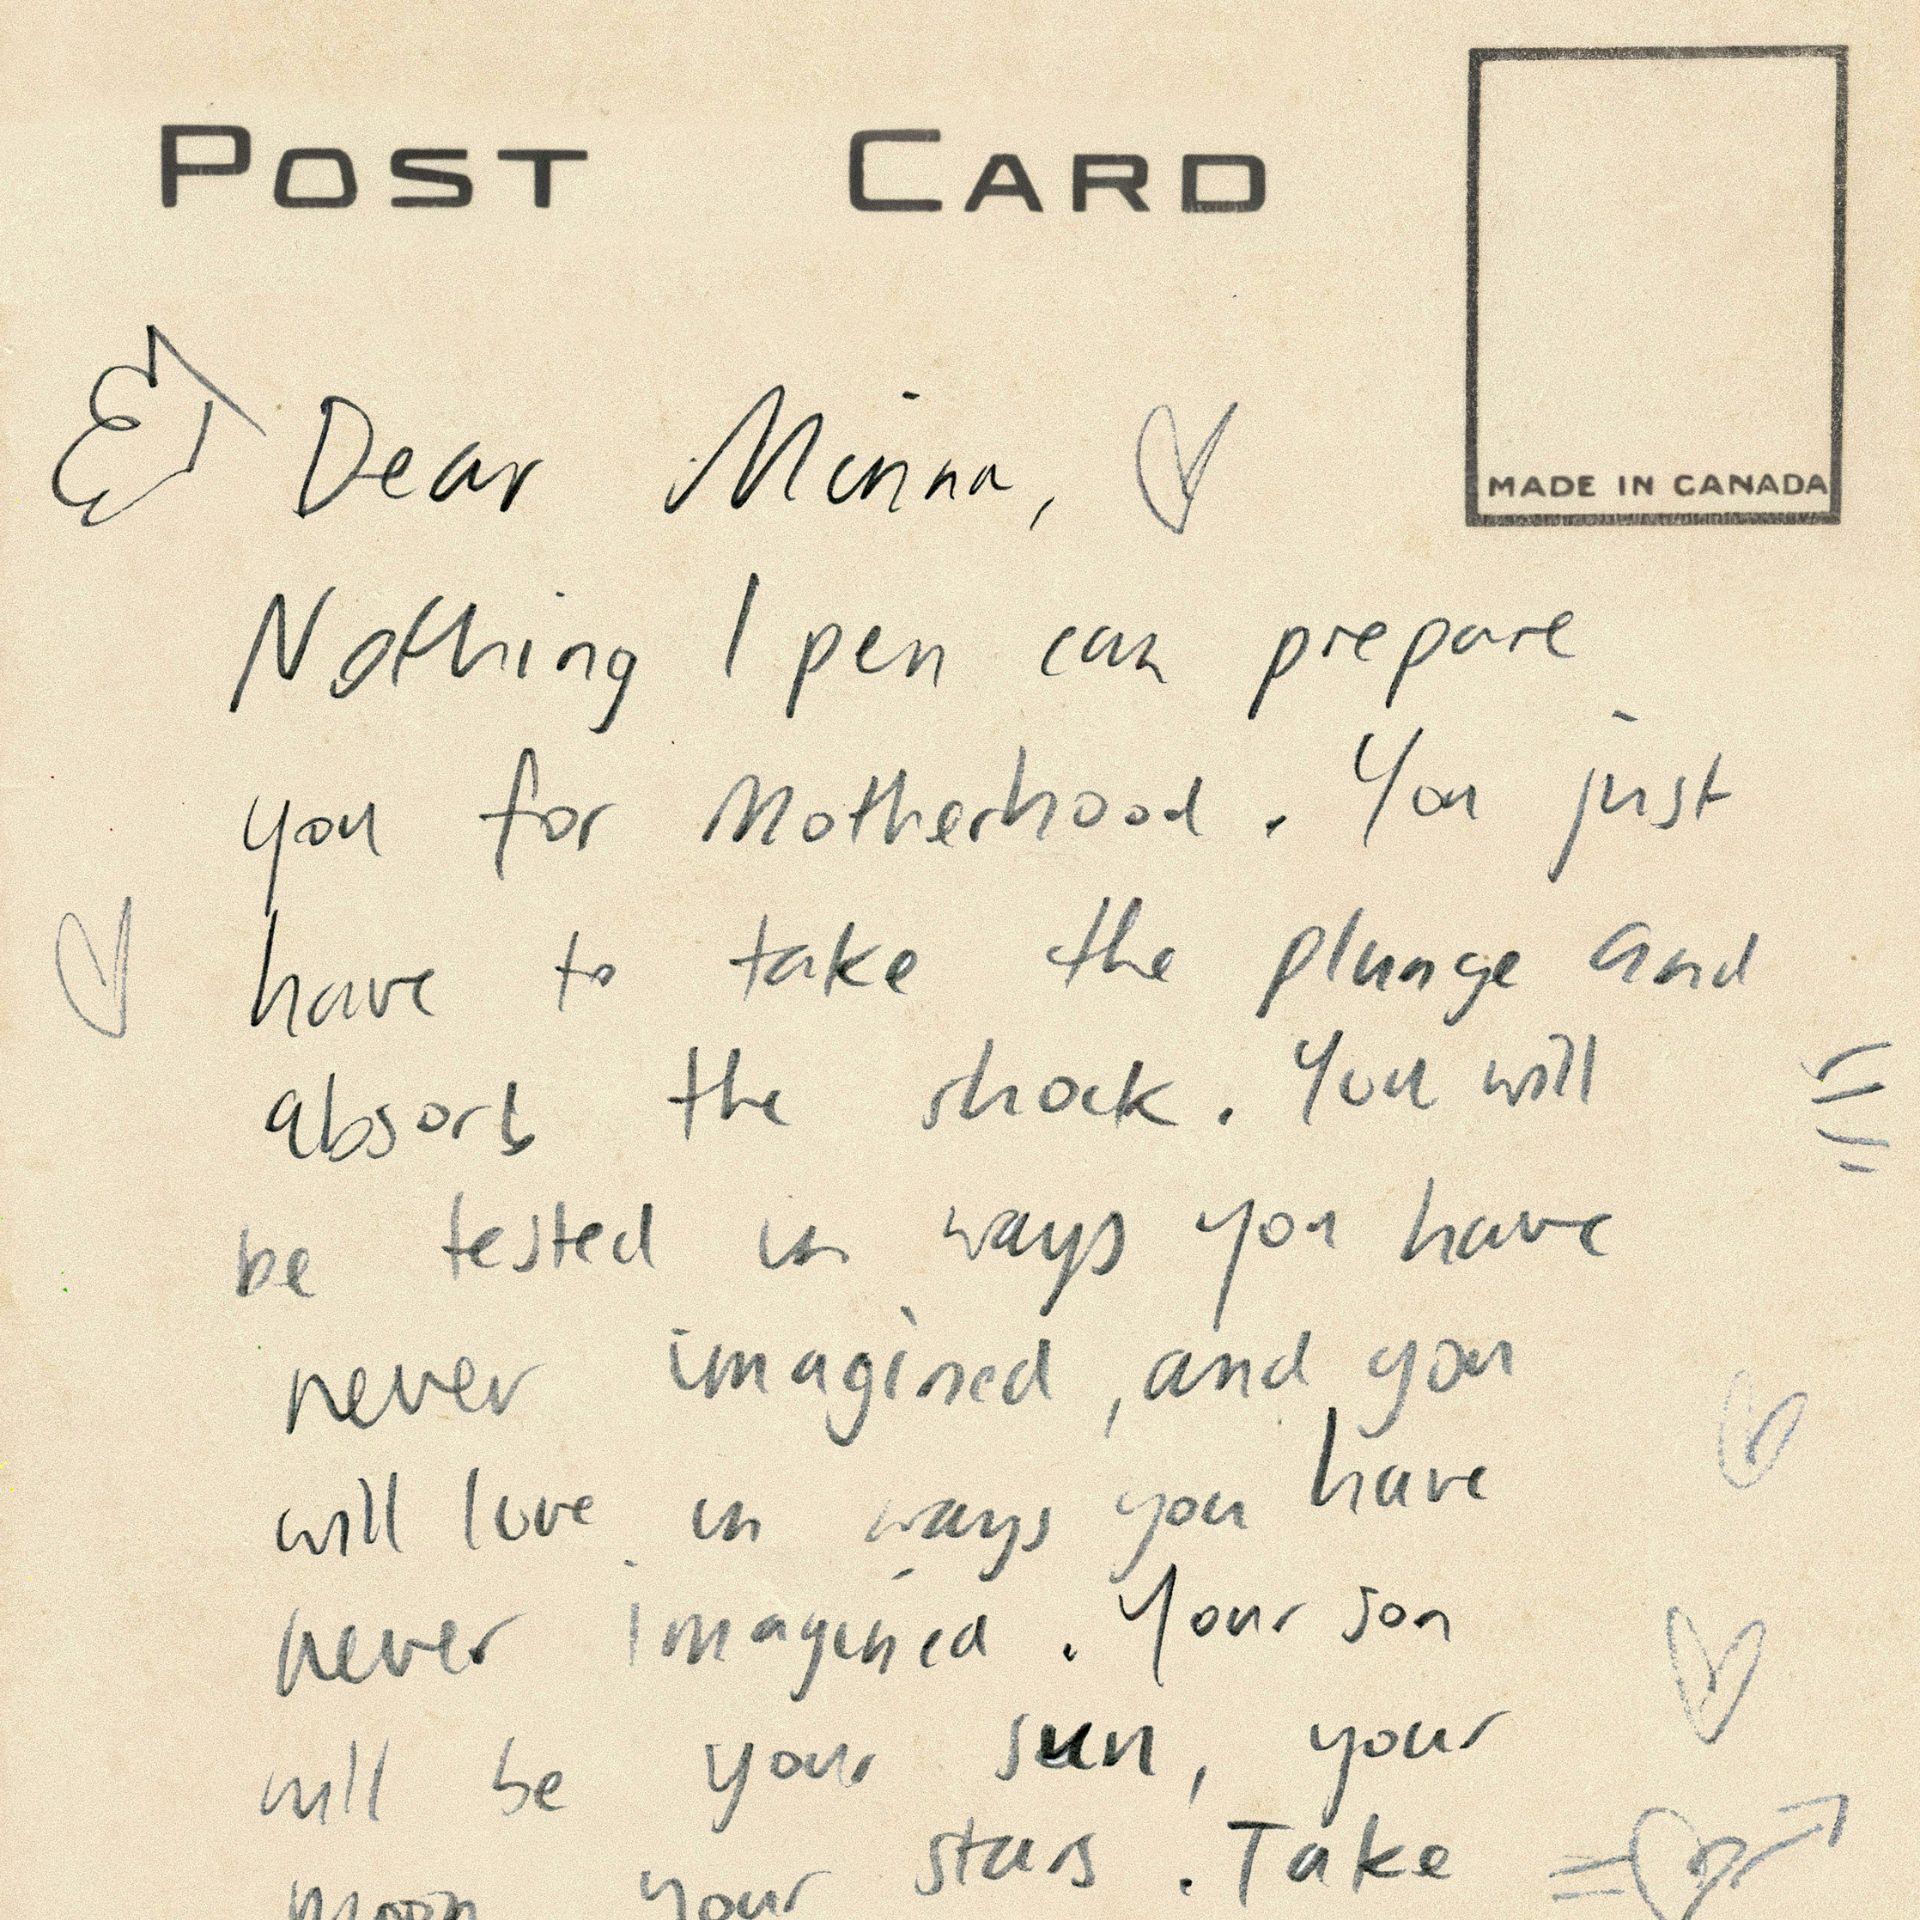 POST CARD
MADE IN CANADA
Dear Minna,
Nothing I pen can prepare
you for Motherhood. You just
have to take the plunge and
absorb the shock. You will
be tested in ways you have
never imagined, and you
will love in ways you have
never imagined. Your son
will be your sun, your
moon your stars. Take